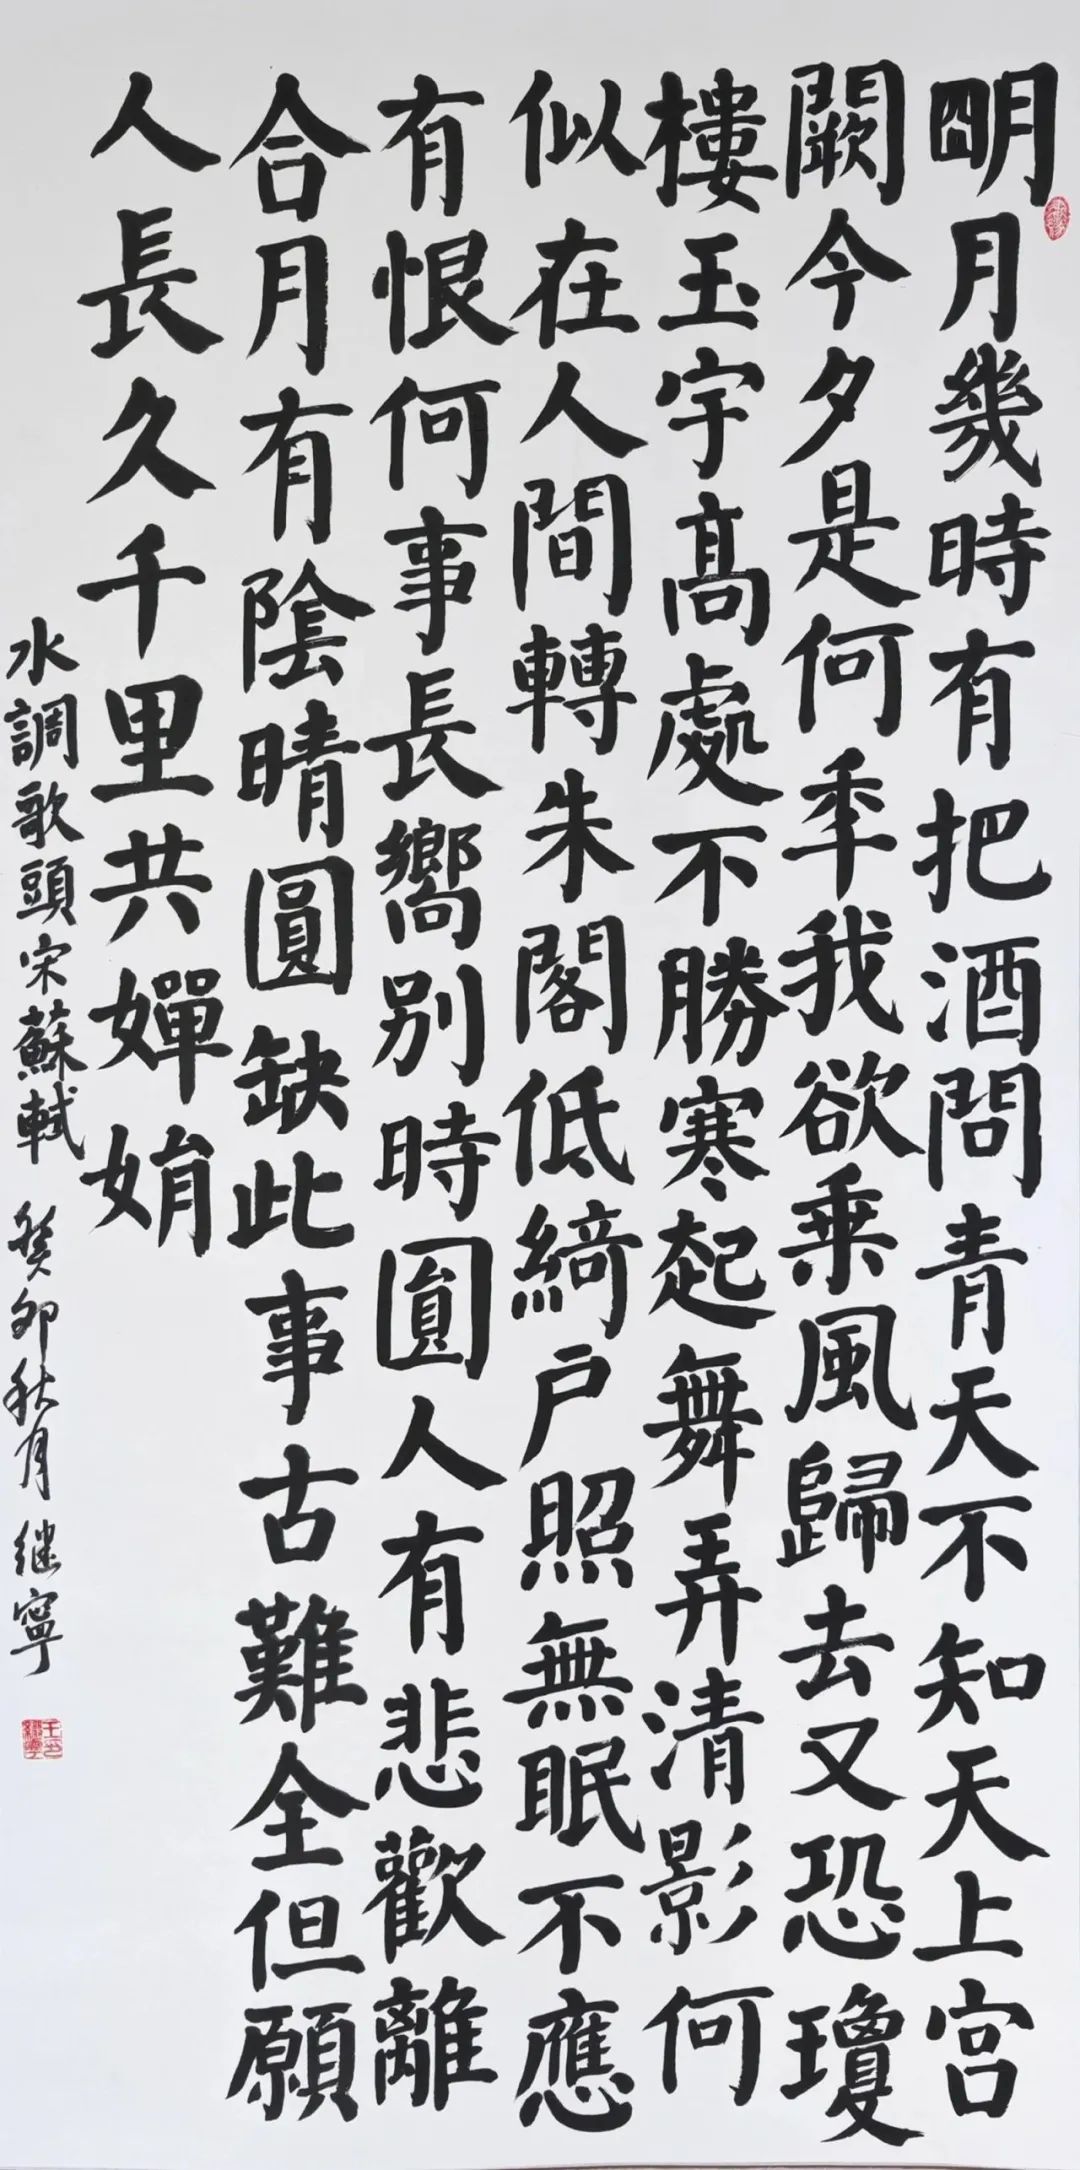 明月幾時有把酒問青天不知天上宫
闕今夕是何年我欲乗風歸去又恐瓊
樓玉宇高處不勝寒起舞弄清影何
似在人間轉朱閣低綺户照無眠不應
有恨何事長嚮别時圓人有悲歡離
合月有陰晴圓缺此事古難全但願
人長久千里共嬋娟
水調歌頭宋蘇軾 癸卯秋月 继寧